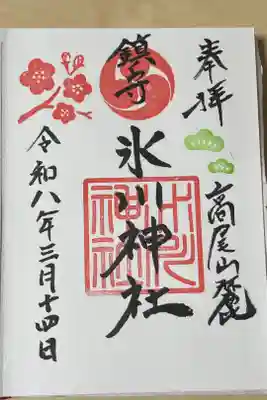 奉拝
高尾山麓
鎮守
氷川神社
氷川神社
令和八年三月十四日